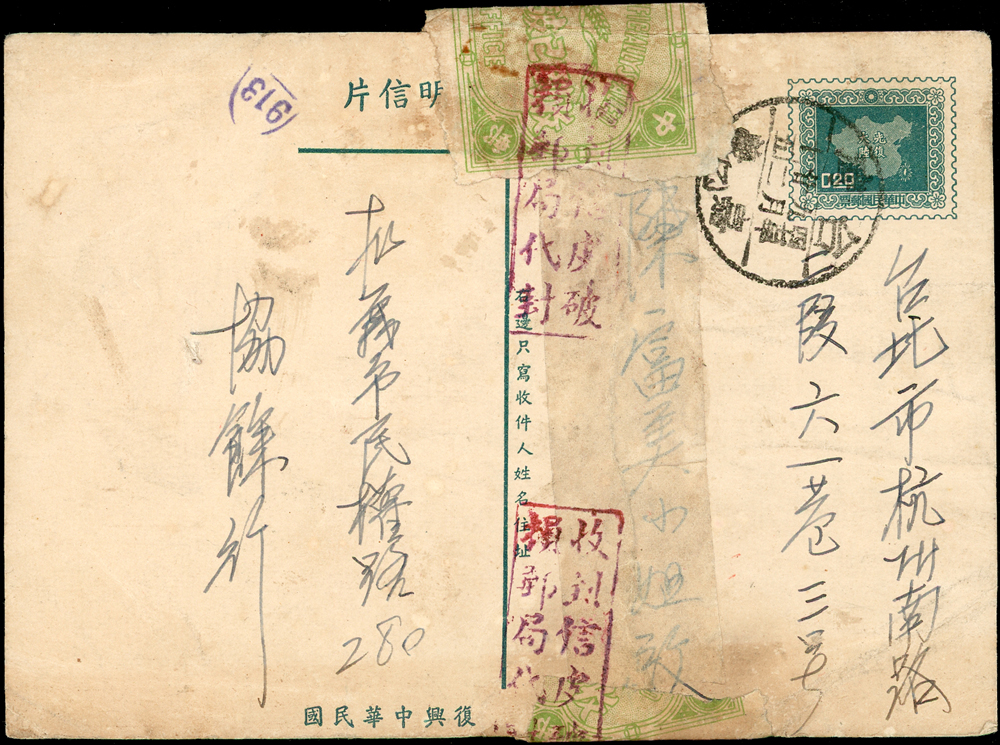 明信片
913
光復大陸
0.20
中華民國郵票
台北市杭州南路
二段六一巷三号
陳富美小姐啟
右邊只寫收件人姓名住址
收到信皮破
損郵局代封
收到信皮破
損郵局代
嘉義市民權路
280
協餘行
復興中華民國
OFFICES